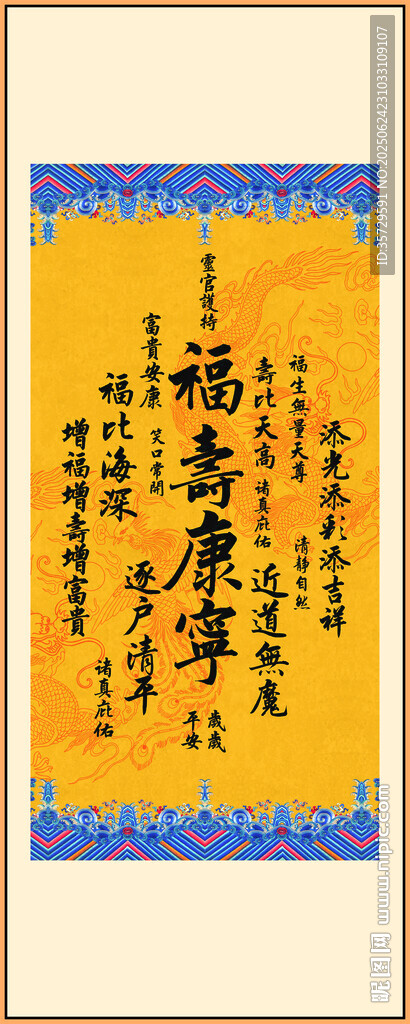 靈官護持
福壽康寧
歲歲
平安
添光添彩添吉祥
福生無量天尊
清靜自然
壽比天高
諸真庇佑
近道無魔
富貴安康
笑口常開
福比海深
逐戶清平
增福增壽增富貴
諸真庇佑
ID:35729591 NO:20250624231033109107
昵图网 www.nipic.com